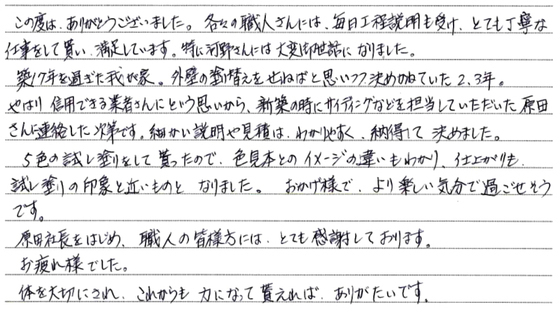 この度は、ありがとうございました。各々の職人さんには、毎日工程説明も受け、とても丁寧な
仕事をして貰い、満足しています。特に河野さんには大変御世話になりました。
築17年を過ぎた我が家。外壁の塗替えをせねばと思いつつ決めかねていた2、3年。
やはり信用できる業者さんにという思いから、新築の時にサイディングなどを担当していただいた原田
さんに連絡した次第です。細かい説明や見積は、わかりやすく、納得して決めました。
5色の試し塗りをして貰ったので、色見本とのイメージの違いもわかり、仕上がりも
試し塗りの印象と近いものとなりました。おかげ様で、より楽しい気分で過ごせそう
です。
原田社長をはじめ、職人の皆様方には、とても感謝しております。
お疲れ様でした。
体を大切にされ、これからも力になって貰えれば、ありがたいです。